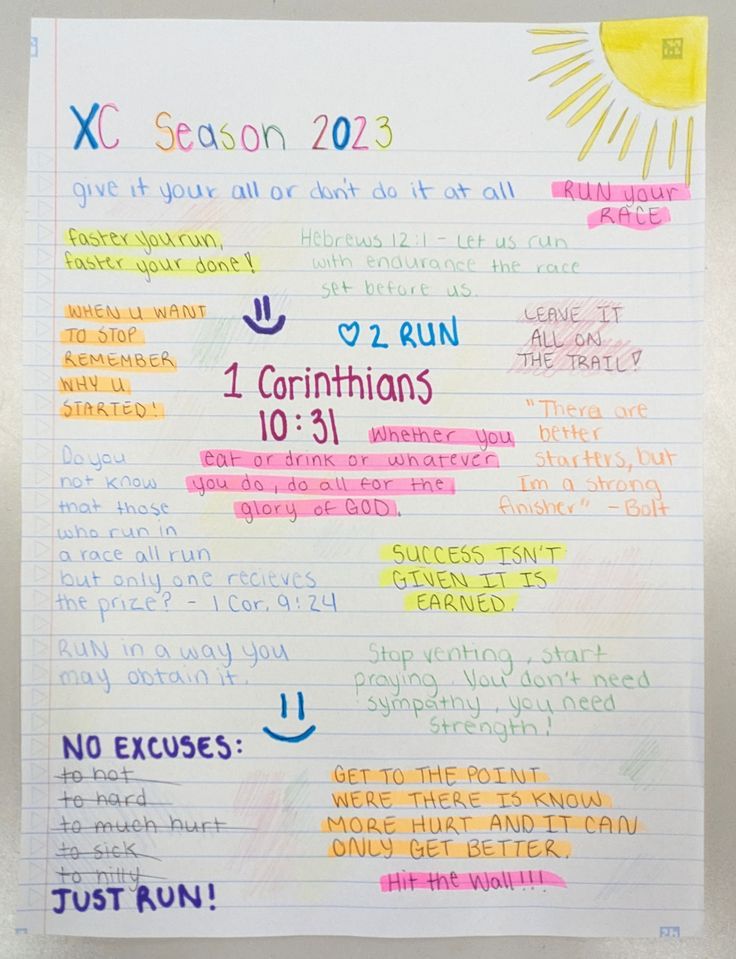 XC Season 2023
give it your all or don't do it at all
RUN your
RACE
faster you run,
faster your done!
Hebrews 12:1 - Let us run
with endurance the race
set before us.
WHEN U WANT
TO STOP
REMEMBER
WHY U
STARTED!
♡ 2 RUN
LEAVE IT
ALL ON
THE TRAIL!
1 Corinthians
10:31 Whether you
eat or drink or whatever
you do, do all for the
glory of GOD.
"There are
better
starters, but
Im a strong
finisher" - Bolt
Do you
not know
that those
who run in
a race all run
but only one recieves
the prize? - 1 Cor. 9:24
SUCCESS ISN'T
GIVEN IT IS
EARNED.
RUN in a way you
may obtain it.
Stop venting, start
praying. You don't need
sympathy, you need
Strength!
NO EXCUSES:
to hot
to hard
to much hurt
to sick
to hilly
JUST RUN!
GET TO THE POINT
WERE THERE IS KNOW
MORE HURT AND IT CAN
ONLY GET BETTER.
Hit the Wall!!!